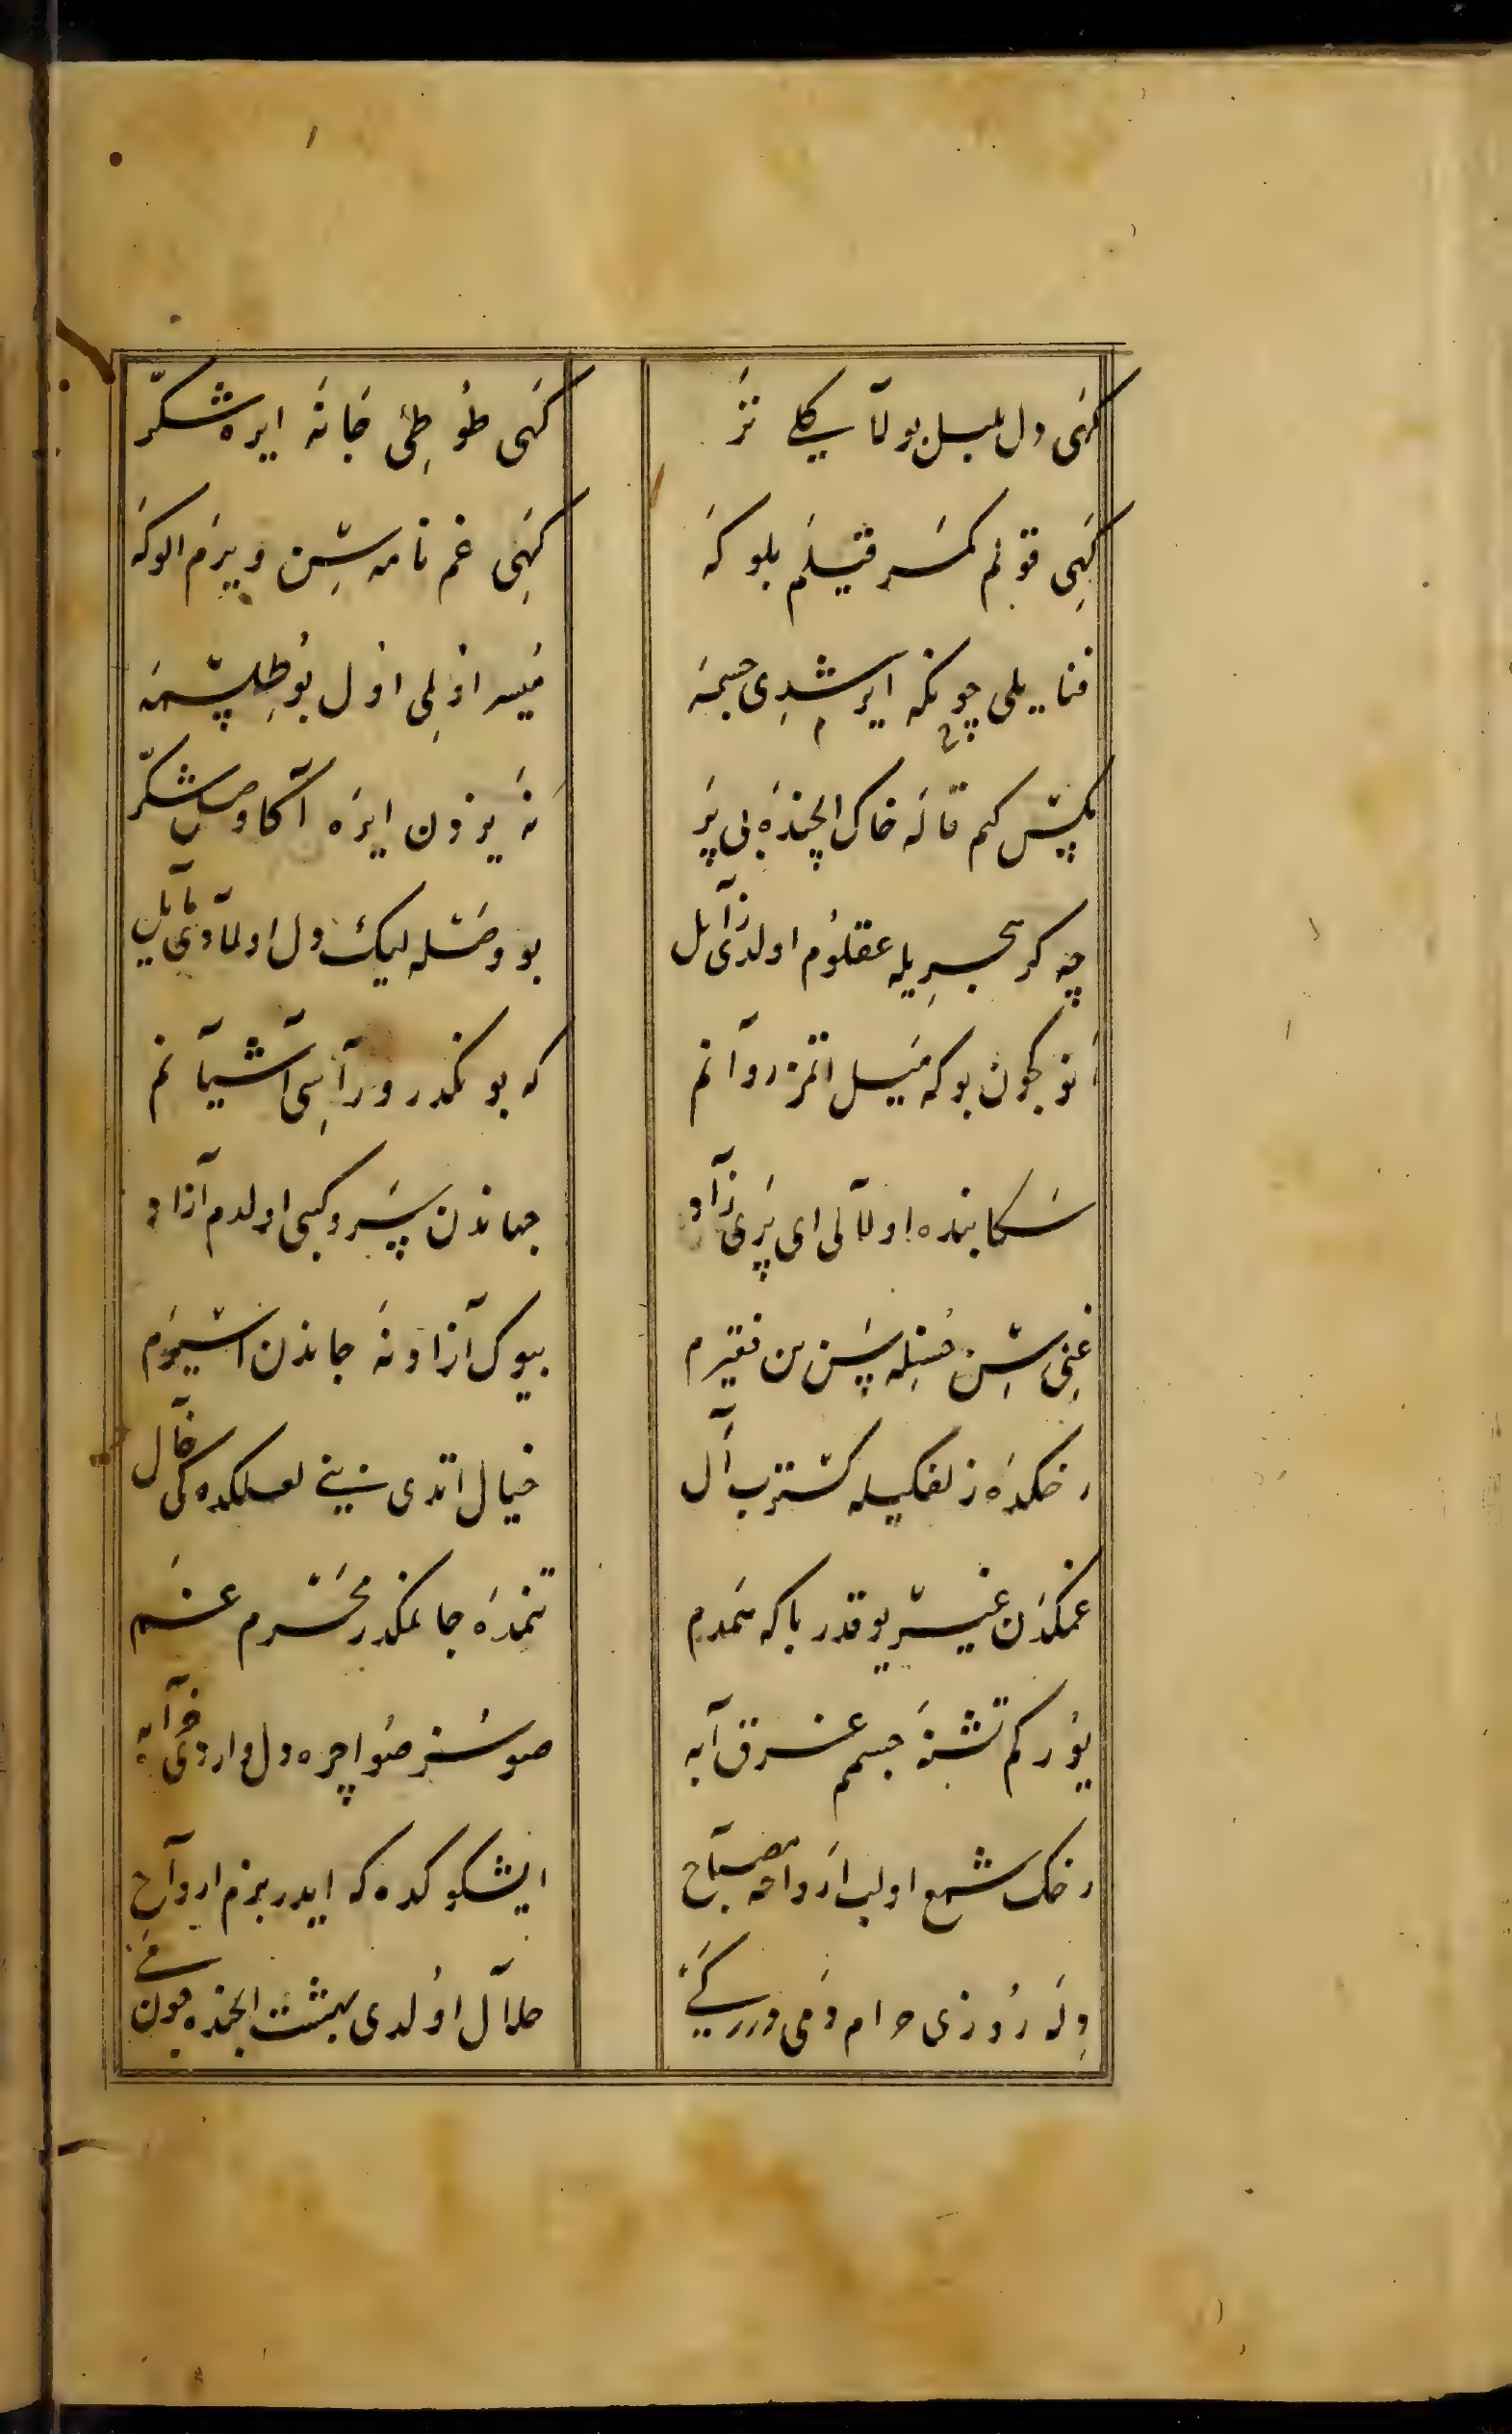 كهی دل بلبل بولا كلی تر
كهی طوطئ جانه ایره شكر
كهی قونم كسر قیلم بلوكه
كهی غم نامه سن ویرم الوكه
فنا یلی چونكه ایرشدی جسمه
میسر اولی اول بو طلسمه
مكس كم قاله خاك ایچنده بی پر
نه یردن ایره آكا وصل شكر
چه كر سحریله عقلوم اولدی زایل
بو وصله لیك دل اولمادی مایل
انوكچون بوكه میل اتمز روانم
كه بو نكدر ورآسی آشیانم
سكا بنده اولالی ای پری زاد
جهاندن سرو كبی اولدم آزاد
غنی سن حسنله سن بن فقیرم
بیوك آزاد نه جاندن اسیرم
رخكده زلفكیله كسترب آل
خیال اتدی بنی لعلكده كی خال
غمكدن غیر یوقدر باكه همدم
تنمده جانمكدر محرم غم
یورركم تشنه جسمم غرق آبه
صوسز صو اچره دل واردی خرابه
رخك شمع اولب ارواحه مصباح
ایشكوكده كه ایدر بزم ارواح
وله روزی حرام دمی در كی
حلال اولدی بهشت ایچنده چون می